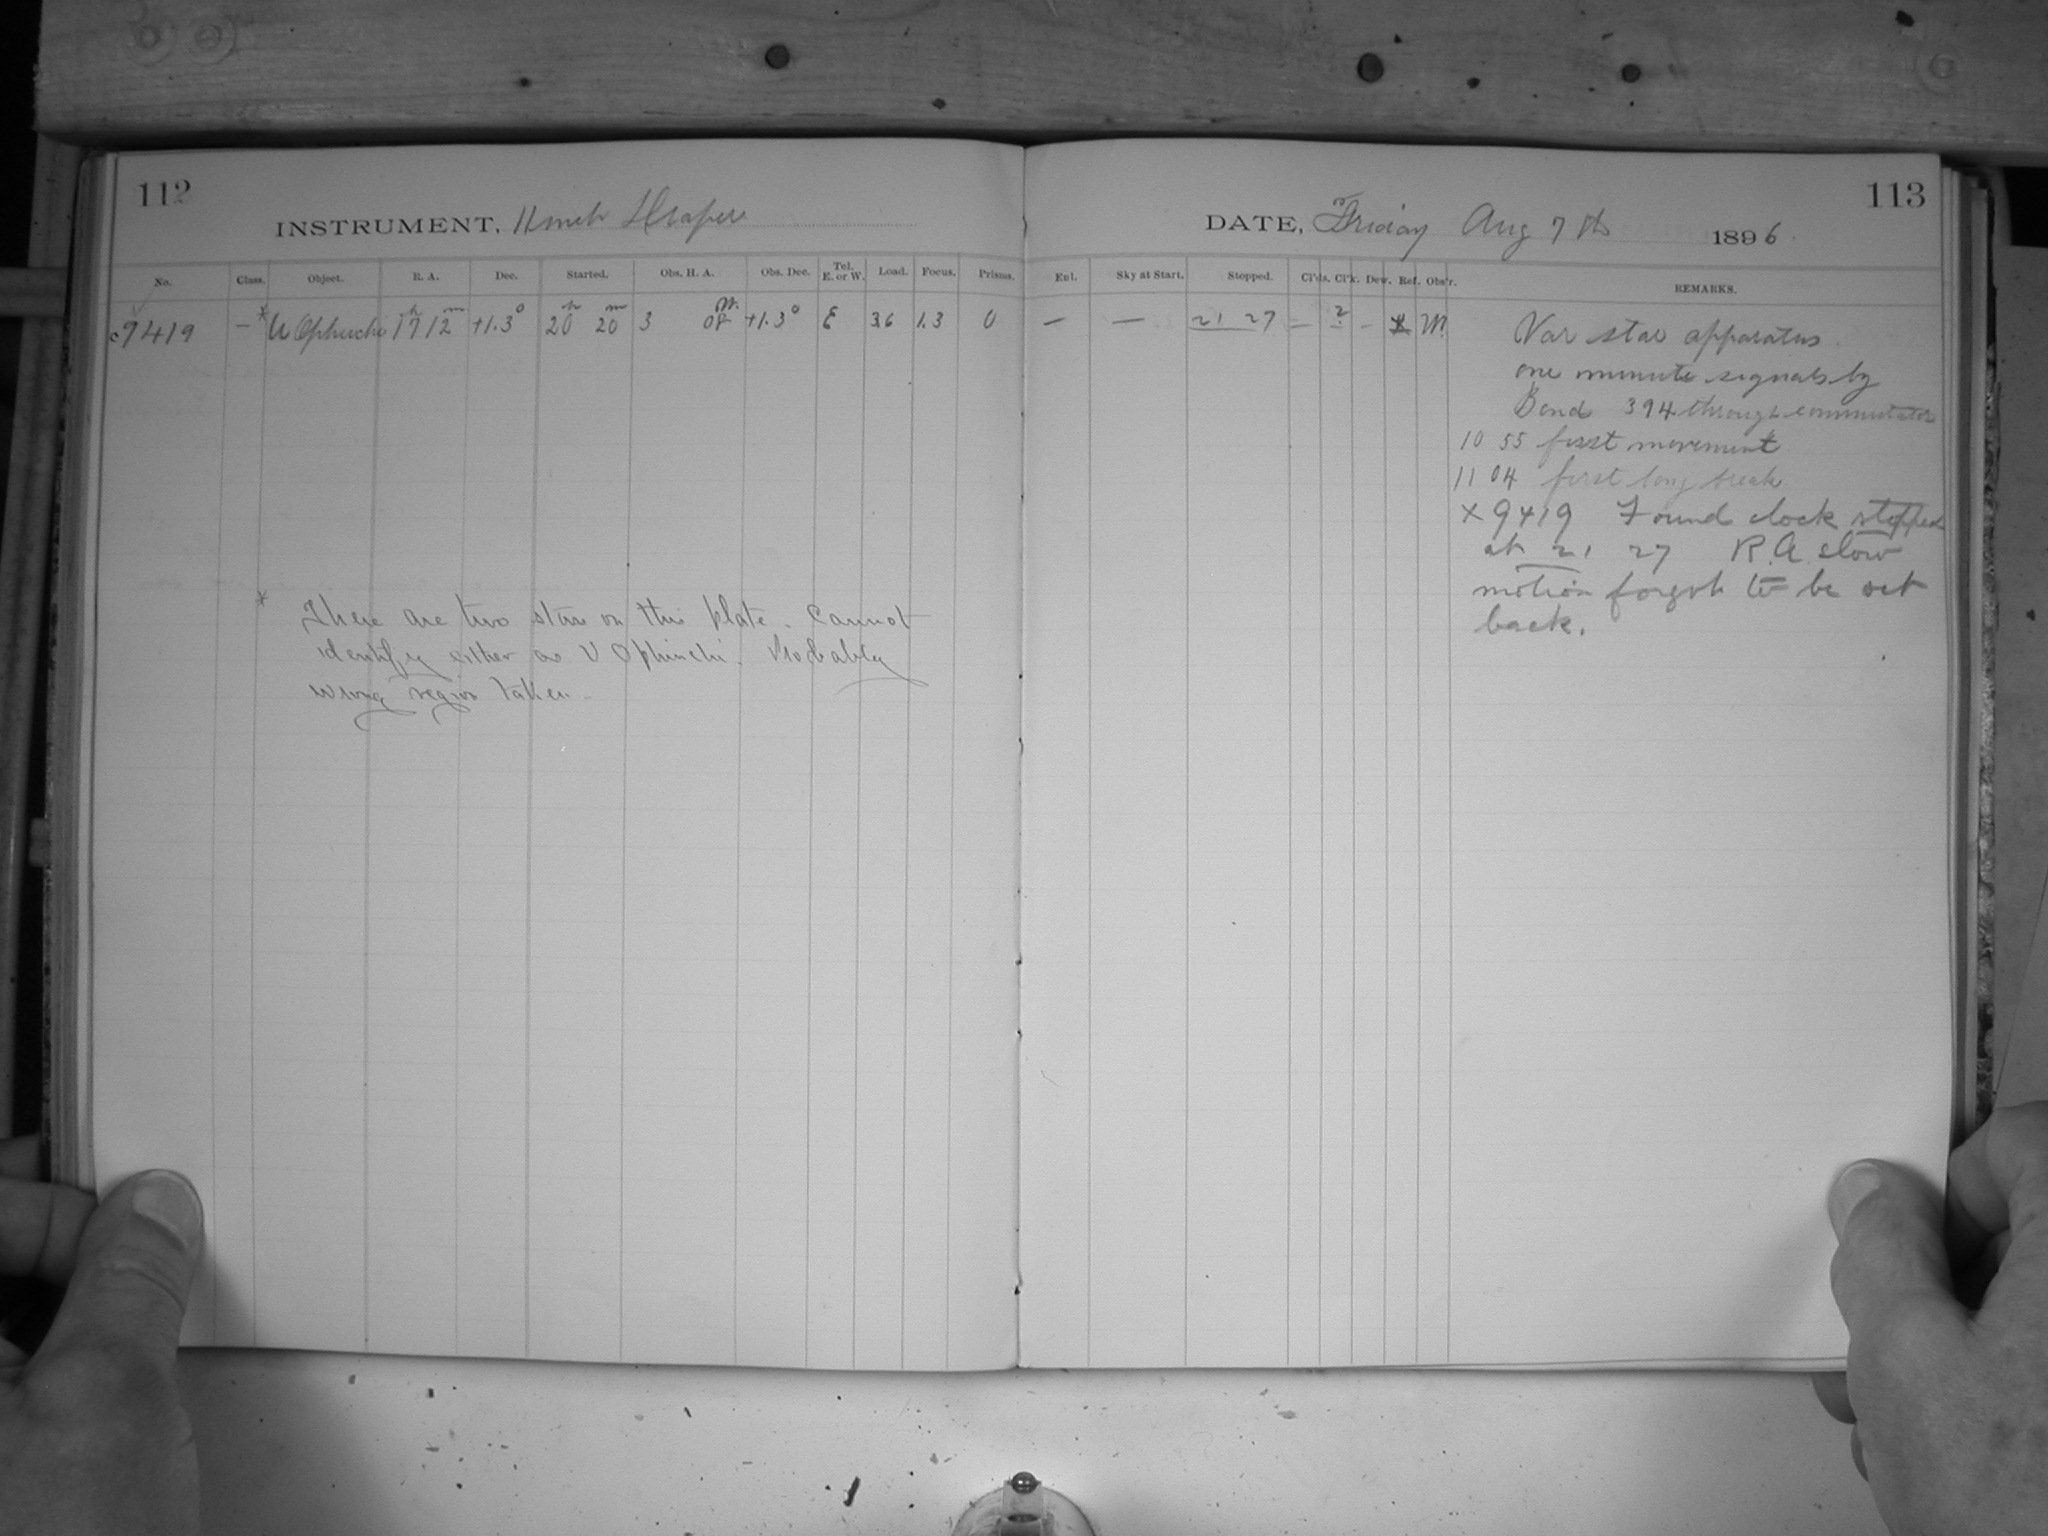 112
INSTRUMENT, 11 inch Draper
No. Class. Object. R. A. Dec. Started. Obs. H. A. Obs. Dec. Tel. E. or W. Load. Focus. Prisms.
c9419 — * U Ophiuchi 17h 12m +1.3° 20h 20m 3 08 W. +1.3° E 36 1.3 0
* There are two stars on this plate. Cannot
identify either as U Ophiuchi. Probably
wrong region taken.
113
DATE, Friday Aug 7th 1896
Enl. Sky at Start. Stopped. Cl'ds. Cl'k. Dew. Ref. Obs'r. REMARKS.
— — 21 27 – 2 – M.
Var star apparatus.
one minute signals by
Bond 394 through commutator
10 55 first movement
11 04 first long break.
× 9419 Found clock stopped
at 21 27 R.A. slow
motion forgot to be set
back.